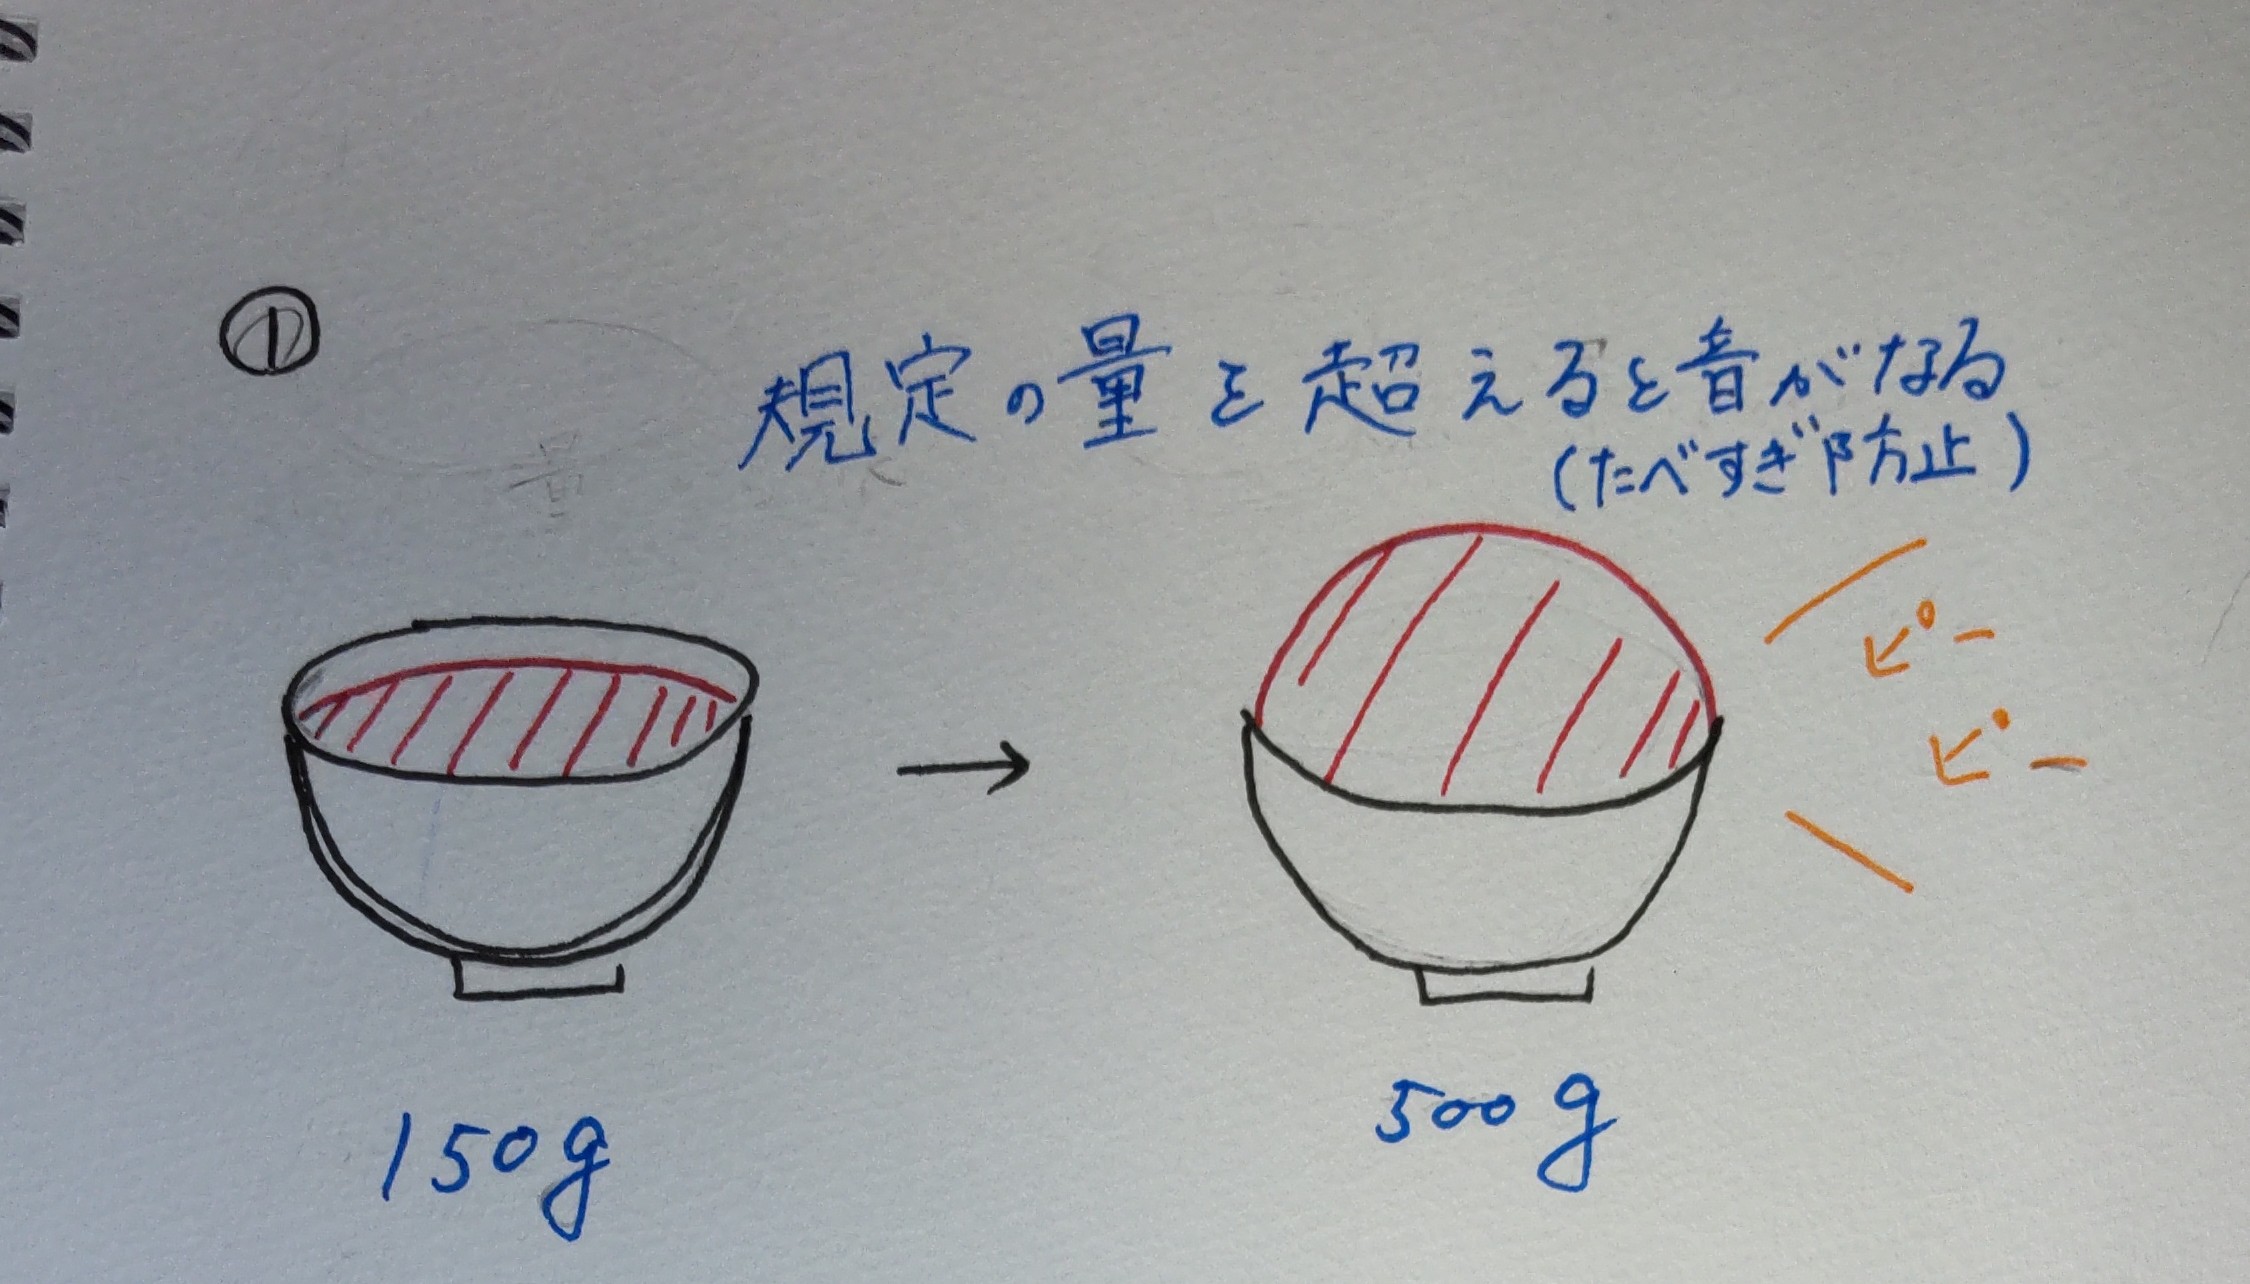 ①
規定の量を超えると音がなる
(たべすぎ防止)
ピー
ピー
150g
500g